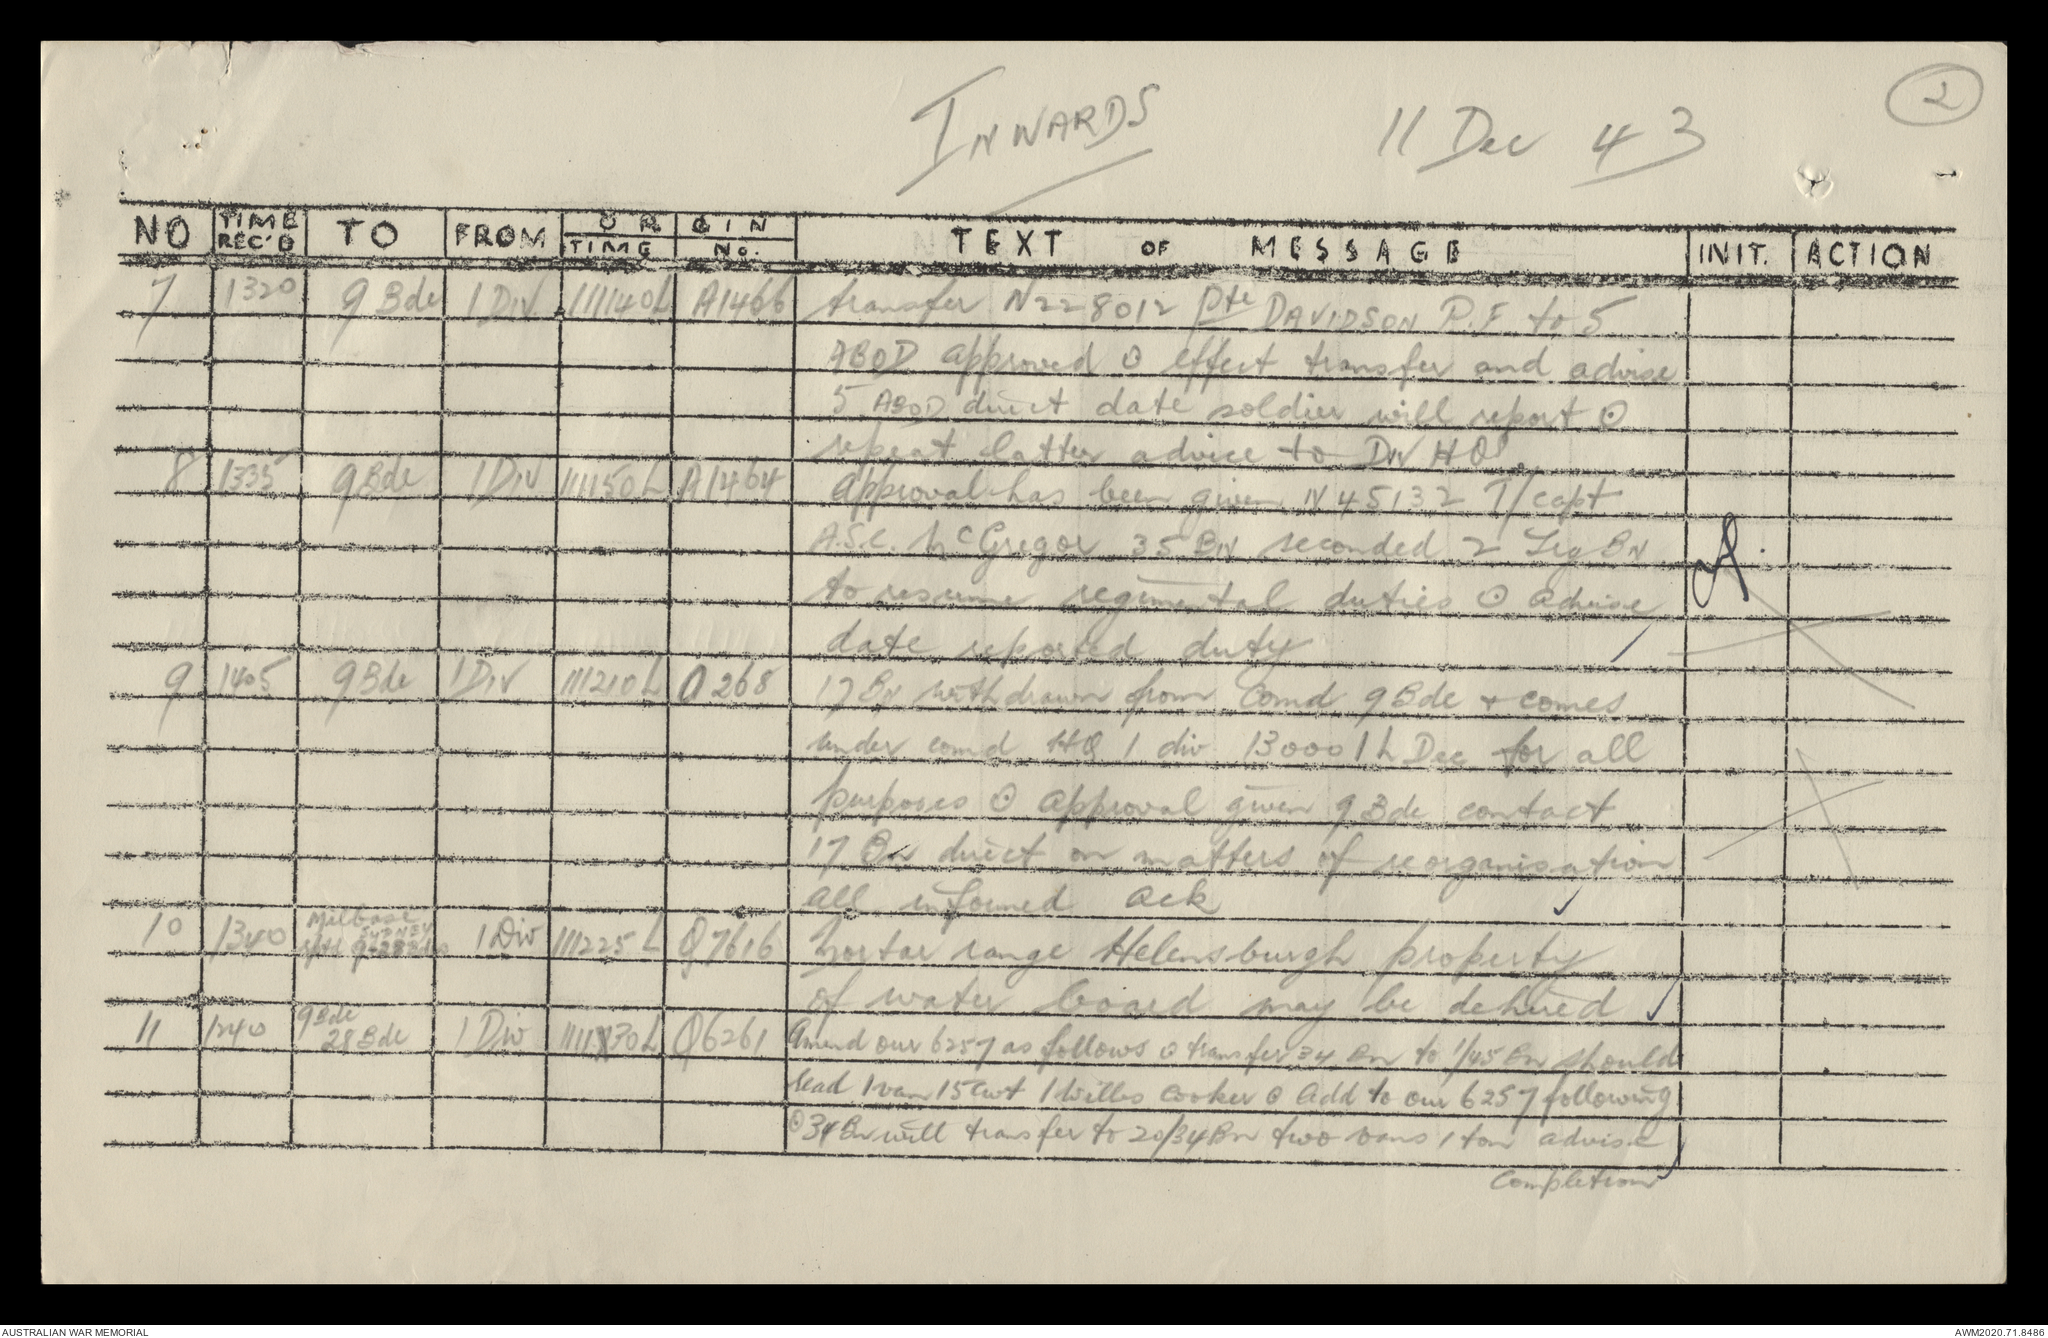 2
INWARDS 11 Dec 43
NO TIME REC'D TO FROM ORIGIN TIME No. TEXT OF MESSAGE INIT. ACTION
7 1320 9 Bde 1 Div 111140L A1466 transfer N228012 Pte DAVIDSON P.F. to 5
ABOD approved ⊙ effect transfer and advise
5 ABOD direct date soldier will report ⊙
repeat latter advice to Div HQ
8 1335 9 Bde 1 Div 111150L A1464 Approval has been given N45132 T/capt
A.S.C. McGregor 35 Bn seconded 2 Trg Bn
to resume regimental duties ⊙ advise
date reported duty
9 1405 9 Bde 1 Div 111210L O268 17 Bn withdrawn from Comd 9 Bde + comes
under comd HQ 1 div 130001L Dec for all
purposes ⊙ approval given 9 Bde contact
17 Bn direct on matters of reorganisation
all informed ack
10 1340 Milbase SYDNEY rptd 9-28 Bdes 1 Div 111225L Q7616 Mortar range Helensburgh property
of water board may be dehired
11 1240 9 Bde 28 Bde 1 Div 111130L Q6261 Amend our 6257 as follows ⊙ transfer 34 Bn to 1/45 Bn should
read 1 van 15cwt 1 Willes cooker ⊙ Add to our 6257 following
⊙ 34 Bn will transfer to 20/34 Bn two vans 1 ton advise
completion
AUSTRALIAN WAR MEMORIAL AWM2020.71.8486